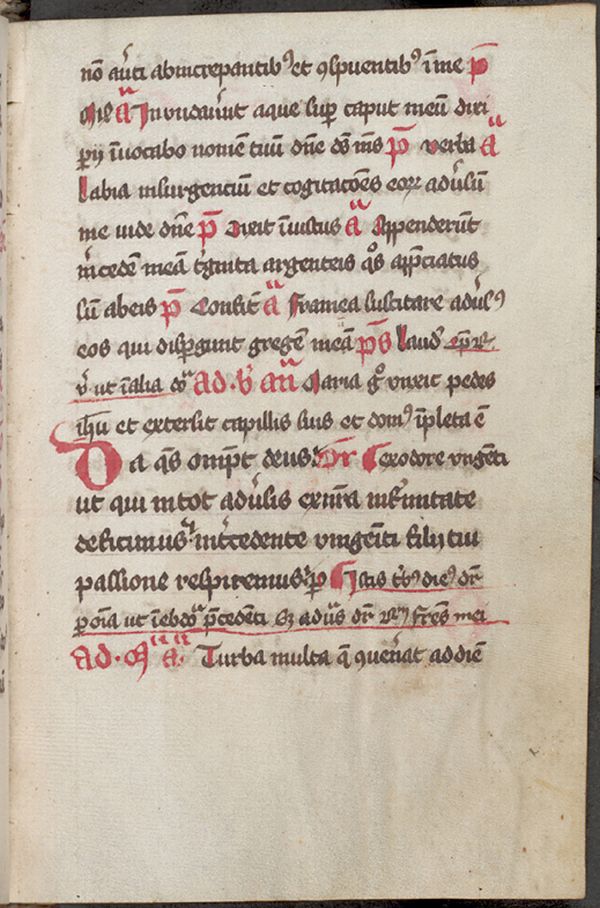 nō aůti abincrepantibꝰ et ꝯspuentibꝰ ī me p̄
Mis a Inundaůut aque suꝑ caput meū dixi
ꝑii īuocabo nomē tuū dn̄e ds̄ ms̄ p̄ verba a
Labia insurgentiū et cogitacōes eoꝝ adůsū
me uide dn̄e p̄ Dixit īiustus a Appenderūt
m̓cedē meā t̓ginta argenteis qͦs app̄ciatus
sū ab eis p̄ Consit̄ a Framea suscitare adůsꝰ
eos qui disꝑgunt gregē meā p̄s laud̓
v̓ ut ī alia Ad v̓ an̄ Maria gͦ vnxit pedes
ih̄u et extersit capillis suis et domꝰ īpleta ē
Da q̄s om̄pt̄ deus Or̄ exodore vngēti
ut qui in tot adůsis ex nr̄a infirmitate
deficimus int̓cedente vnigēiti filij tui
passione respiremus ꝑ Istis t̓bꝰ diebꝰ dr̄
ꝑ oīa ut ī ebdoᵃ p̄cedēti Sꝫ adůs dr̄ fr̄es mei
Ad . Mᵃ a . Turba multa q̄ ꝯuen̓at ad diē